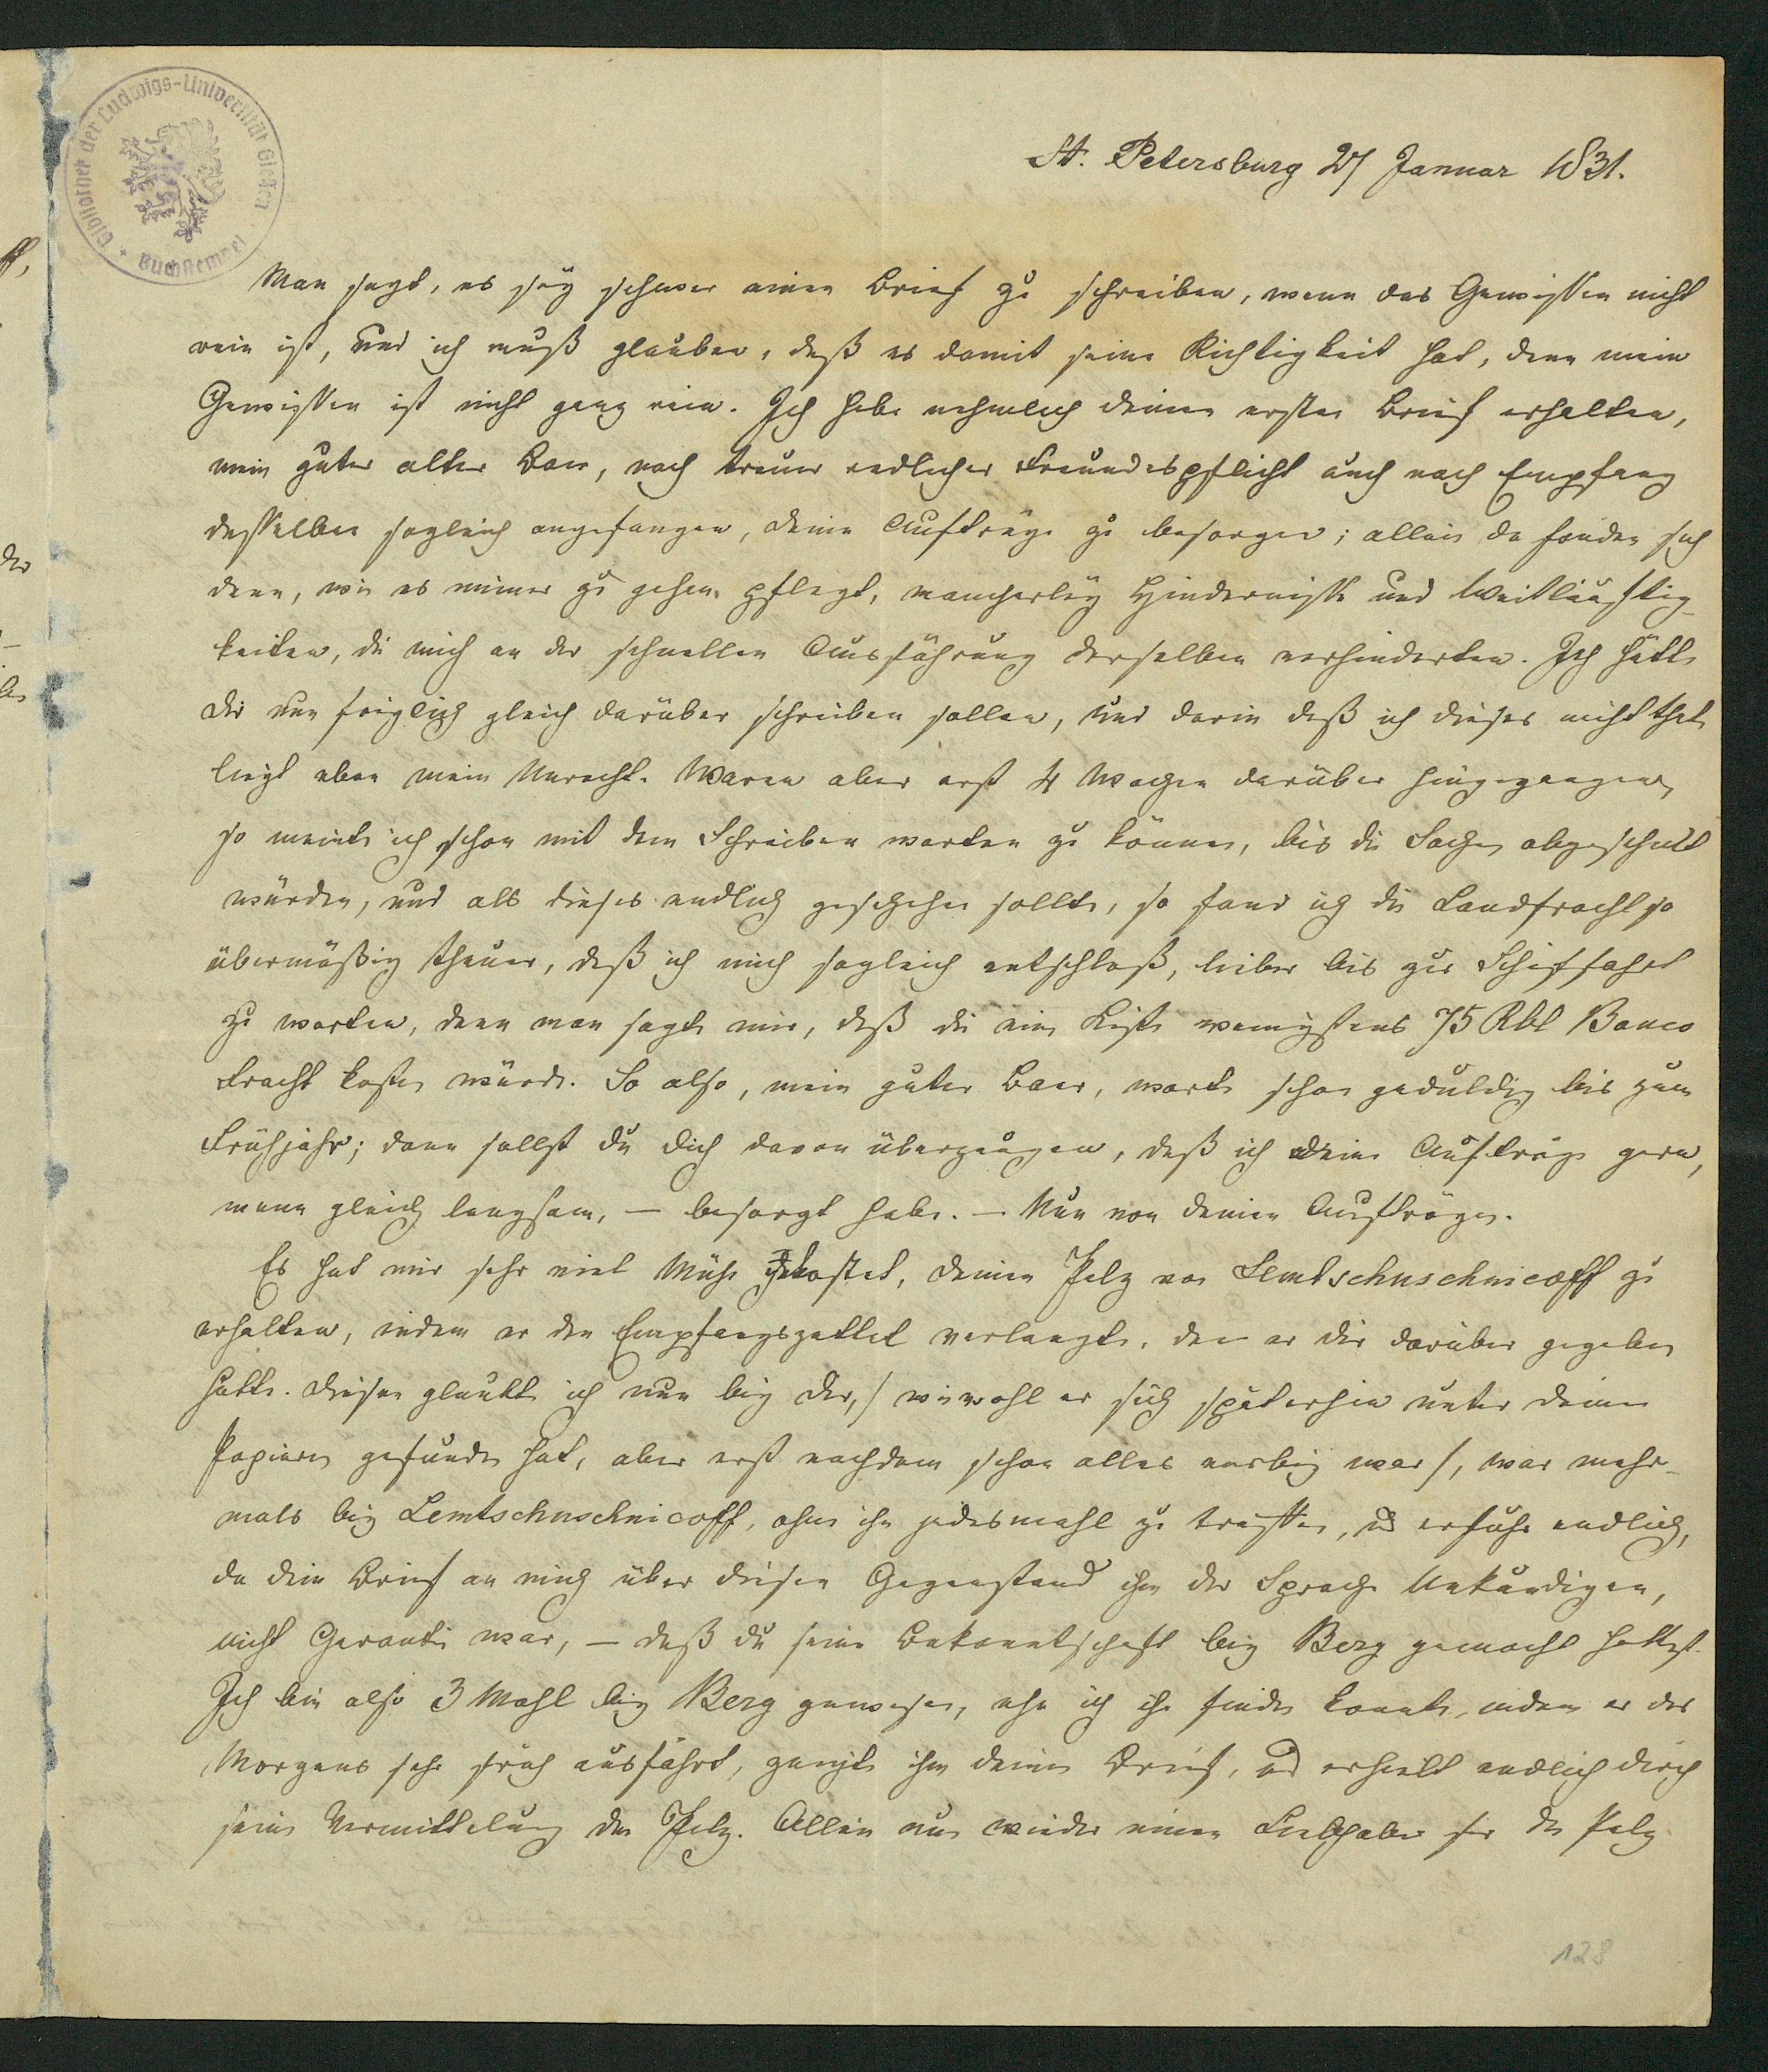 Bibliothek der Ludwigs-Universität Gießen
Buchstempel
St. Petersburg 27 Januar 1831.
Man sagt, es sey schwer einen Brief zu schreiben, wenn das Gewissen nicht
rein ist, und ich muß glauben, daß es damit seine Richtigkeit hat, denn mein
Gewissen ist nicht ganz rein. Ich habe nehmlich deinen ersten Brief erhalten,
mein guter alter Baer, nach treuer redlicher Freundespflicht auch nach Empfang
desselben sogleich angefangen, deine Aufträge zu besorgen; allein da fanden sich
denn, wie es immer zu gehen pflegt, mancherley Hindernisse und Weitläuftig-
keiten, die mich an der schnellen Ausführung derselben verhinderten. Ich hätte
dir nun füglich gleich darüber schreiben sollen, und darin daß ich dieses nicht that
liegt eben mein Unrecht. Waren aber erst 4 Wochen darüber hingegangen,
so meinte ich schon mit dem Schreiben warten zu können, bis die Sachen abgeschickt
würden, und als dieses endlich geschehen sollte, so fand ich die Landfracht so
übermäßig theuer, daß ich mich sogleich entschloß, lieber bis zur Schiffahrt
zu warten, denn man sagte mir, daß die eine Kiste wenigstens 75 Rbl Banco
Fracht kosten würde. So also, mein guter Baer, warte schon geduldig bis zum
Frühjahr; dann sollst du dich davon überzeugen, daß ich deine Aufträge gern,
wenn gleich langsam, – besorgt habe. – Nun von deinen Aufträgen.
Es hat mir sehr viel Mühe gekostet, deinen Pelz von Lemtschuschnicoff zu
erhalten, indem er den Empfangszettel verlangte, den er dir darüber gegeben
hatte. Diesen glaubte ich nun bey dir, / wiewohl er sich späterhin unter deinen
Papieren gefunden hat, aber erst nachdem schon alles vorbey war /, war mehr-
mals bey Lemtschuschnicoff, ohne ihn jedesmahl zu treffen, und erfuhr endlich,
da dein Brief an mich über diesen Gegenstand ihm der Sprache Unkundigen,
nicht Garantie war, – daß du seine Bekanntschaft bey Berg gemacht hattest.
Ich bin also 3 Mahl bey Berg gewesen, ehe ich ihn finden konnte, indem er des
Morgens sehr früh ausfährt, zeigte ihm deinen Brief, und erhielt endlich durch
seine Vermittelung den Pelz. Allein nun wieder einen Liebhaber für den Pelz
128